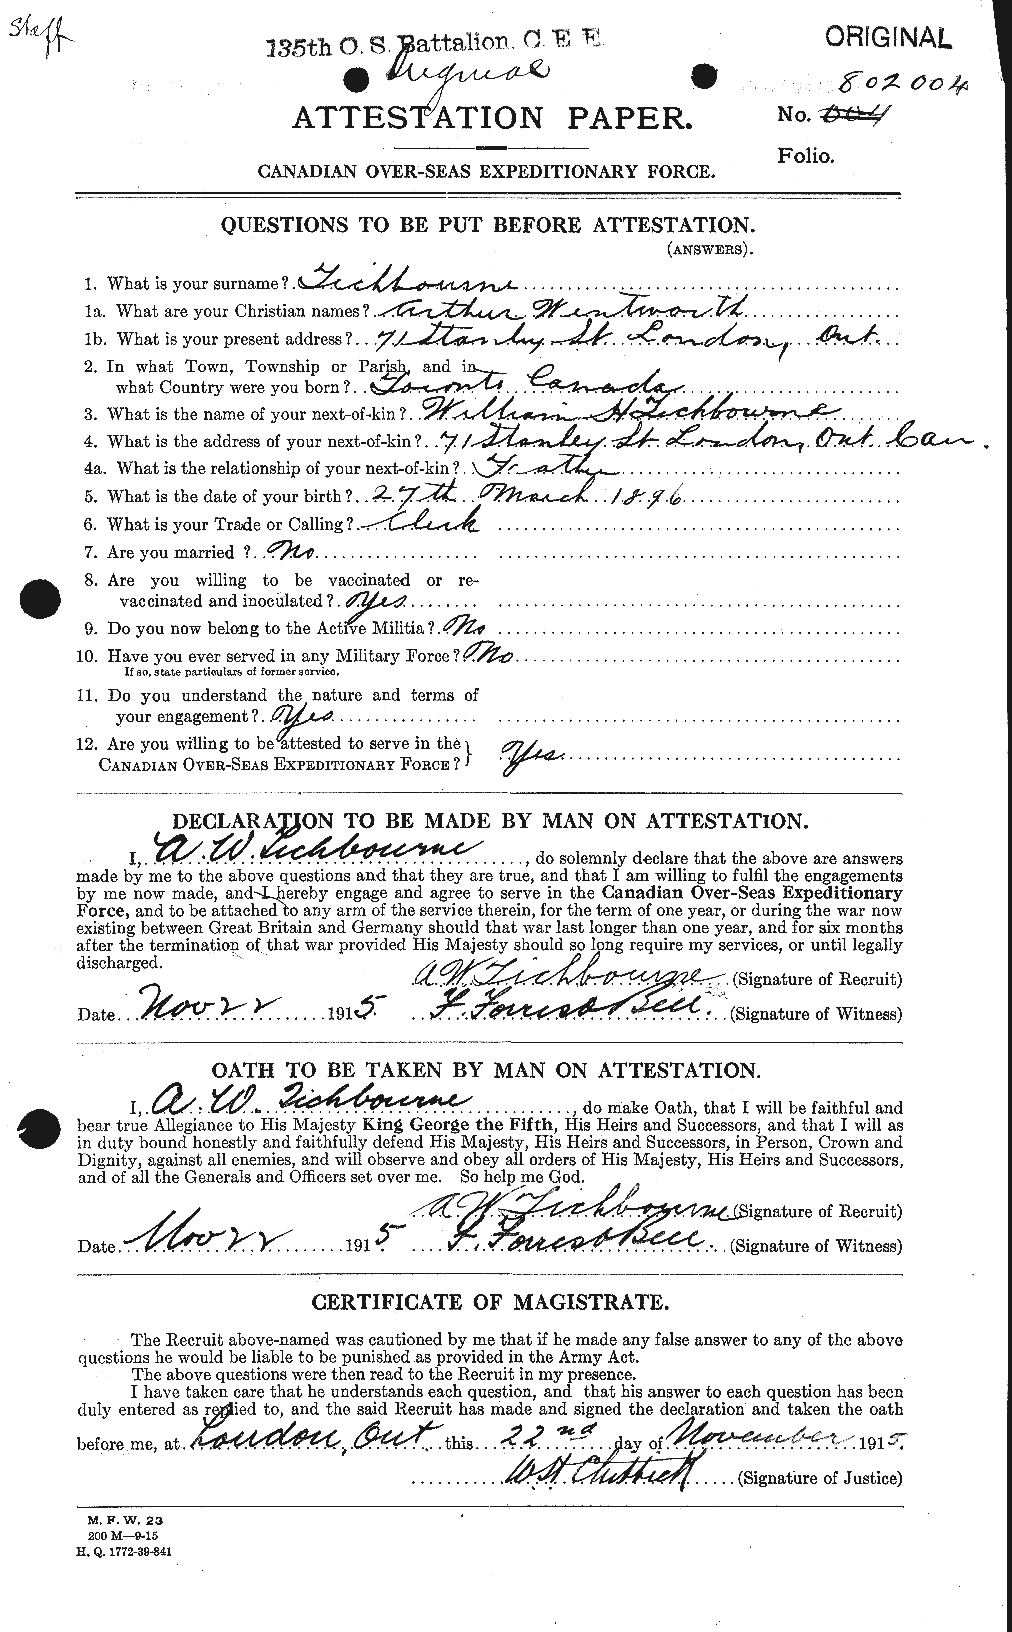 Staff
135th O. S. Battalion. C E F.
ORIGINAL
802004
ATTESTATION PAPER.
No. 004
Folio.
CANADIAN OVER-SEAS EXPEDITIONARY FORCE.
QUESTIONS TO BE PUT BEFORE ATTESTATION.
(ANSWERS).
1. What is your surname? Tichbourne
1a. What are your Christian names? Arthur Wentworth
1b. What is your present address? 71 Stanley St. London, Ont.
2. In what Town, Township or Parish, and in
what Country were you born? Toronto Canada
3. What is the name of your next-of-kin? William H Tichbourne
4. What is the address of your next-of-kin? 71 Stanley St. London, Ont Can.
4a. What is the relationship of your next-of-kin? Father
5. What is the date of your birth? 27th March 1896
6. What is your Trade or Calling? Clerk
7. Are you married ? No
8. Are you willing to be vaccinated or re-
vaccinated and inoculated? Yes
9. Do you now belong to the Active Militia? No
10. Have you ever served in any Military Force? No
If so, state particulars of former service.
11. Do you understand the nature and terms of
your engagement? Yes
12. Are you willing to be attested to serve in the
CANADIAN OVER-SEAS EXPEDITIONARY FORCE? } Yes
DECLARATION TO BE MADE BY MAN ON ATTESTATION.
I, A. W. Tichbourne, do solemnly declare that the above are answers
made by me to the above questions and that they are true, and that I am willing to fulfil the engagements
by me now made, and I hereby engage and agree to serve in the Canadian Over-Seas Expeditionary
Force, and to be attached to any arm of the service therein, for the term of one year, or during the war now
existing between Great Britain and Germany should that war last longer than one year, and for six months
after the termination of that war provided His Majesty should so long require my services, or until legally
discharged.
A W Tichbourne (Signature of Recruit)
Date Nov 22 1915 F. Forrest Bell (Signature of Witness)
OATH TO BE TAKEN BY MAN ON ATTESTATION.
I, A. W. Tichbourne, do make Oath, that I will be faithful and
bear true Allegiance to His Majesty King George the Fifth, His Heirs and Successors, and that I will as
in duty bound honestly and faithfully defend His Majesty, His Heirs and Successors, in Person, Crown and
Dignity, against all enemies, and will observe and obey all orders of His Majesty, His Heirs and Successors,
and of all the Generals and Officers set over me. So help me God.
A W Tichbourne (Signature of Recruit)
Date Nov 22 1915 F. Forrest Bell (Signature of Witness)
CERTIFICATE OF MAGISTRATE.
The Recruit above-named was cautioned by me that if he made any false answer to any of the above
questions he would be liable to be punished as provided in the Army Act.
The above questions were then read to the Recruit in my presence.
I have taken care that he understands each question, and that his answer to each question has been
duly entered as replied to, and the said Recruit has made and signed the declaration and taken the oath
before me, at London, Ont this 22nd day of November 1915.
(Signature of Justice)
M. F. W. 23
200 M—9-15
H. Q. 1772-39-841